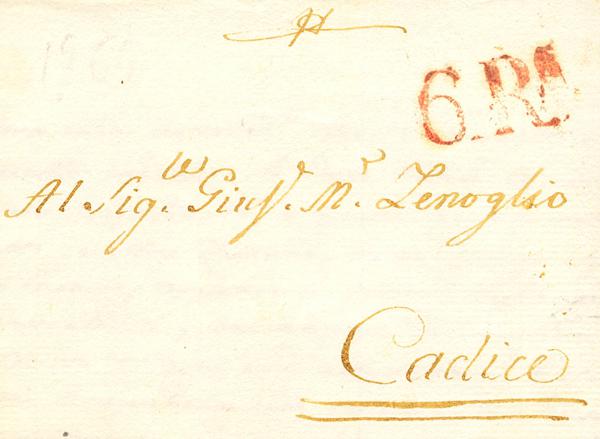 6.Rs
Al Sig.re Gius. Mr. Zenoglio
Cadice